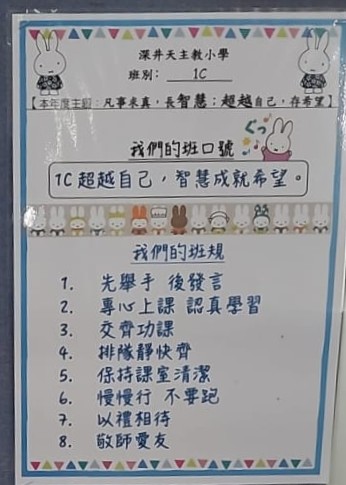 深井天主教小學
班別： 1C
【本年度主題：凡事求真，長智慧；超越自己，存希望】
ぐっ
我們的班口號
1C 超越自己，智慧成就希望。
我們的班規
1. 先舉手 後發言
2. 專心上課 認真學習
3. 交齊功課
4. 排隊靜快齊
5. 保持課室清潔
6. 慢慢行 不要跑
7. 以禮相待
8. 敬師愛友